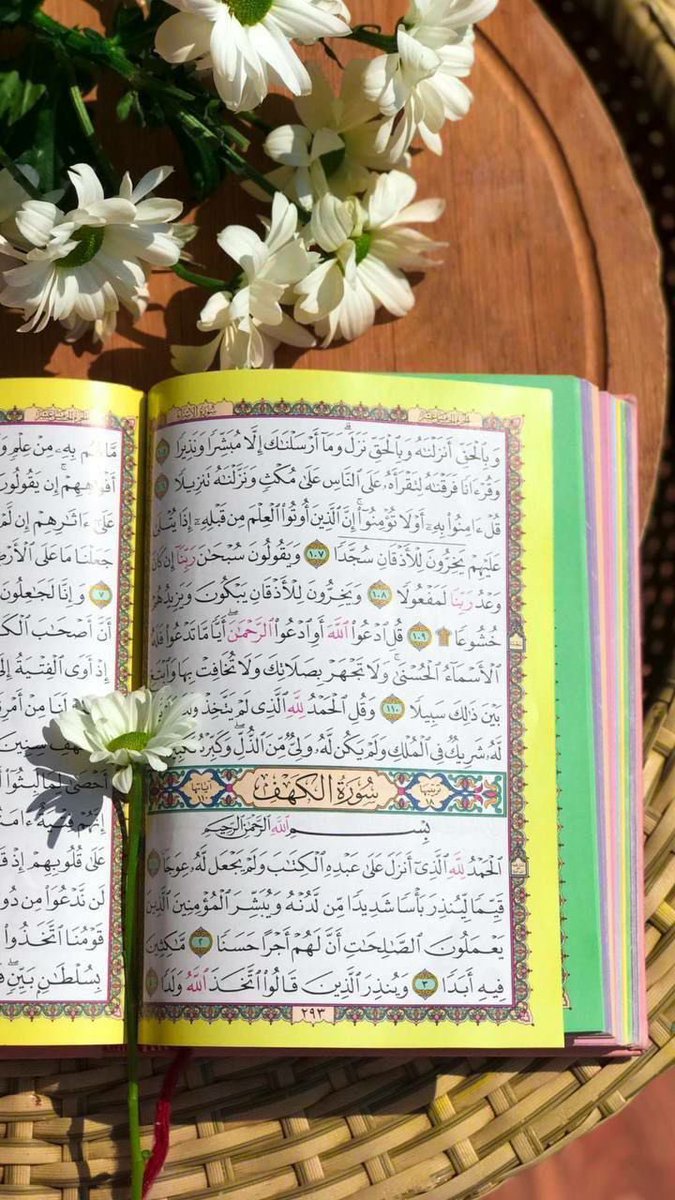 سُورَةُ الإِسْرَاءِ الجُزْءُ الخَامِسَ عَشَرَ
وَبِٱلْحَقِّ أَنزَلْنَٰهُ وَبِٱلْحَقِّ نَزَلَۗ وَمَآ أَرْسَلْنَٰكَ إِلَّا مُبَشِّرًا وَنَذِيرًا ١٠٥
وَقُرْءَانًا فَرَقْنَٰهُ لِتَقْرَأَهُۥ عَلَى ٱلنَّاسِ عَلَىٰ مُكْثٍ وَنَزَّلْنَٰهُ تَنزِيلًا ١٠٦
قُلْ ءَامِنُوا۟ بِهِۦٓ أَوْ لَا تُؤْمِنُوٓا۟ۚ إِنَّ ٱلَّذِينَ أُوتُوا۟ ٱلْعِلْمَ مِن قَبْلِهِۦٓ إِذَا يُتْلَىٰ
عَلَيْهِمْ يَخِرُّونَ لِلْأَذْقَانِ سُجَّدًا ١٠٧ وَيَقُولُونَ سُبْحَٰنَ رَبِّنَآ إِن كَانَ
وَعْدُ رَبِّنَا لَمَفْعُولًا ١٠٨ وَيَخِرُّونَ لِلْأَذْقَانِ يَبْكُونَ وَيَزِيدُهُمْ
خُشُوعًا ۩ ١٠٩ قُلِ ٱدْعُوا۟ ٱللَّهَ أَوِ ٱدْعُوا۟ ٱلرَّحْمَٰنَۖ أَيًّا مَّا تَدْعُوا۟ فَلَهُ
ٱلْأَسْمَآءُ ٱلْحُسْنَىٰۚ وَلَا تَجْهَرْ بِصَلَاتِكَ وَلَا تُخَافِتْ بِهَا وَٱبْتَغِ
بَيْنَ ذَٰلِكَ سَبِيلًا ١١٠ وَقُلِ ٱلْحَمْدُ لِلَّهِ ٱلَّذِى لَمْ يَتَّخِذْ وَلَدًا
لَّهُۥ شَرِيكٌ فِى ٱلْمُلْكِ وَلَمْ يَكُن لَّهُۥ وَلِىٌّ مِّنَ ٱلذُّلِّۖ وَكَبِّرْهُ تَكْبِيرًا
ترتيبها ١٨ سُورَةُ الكَهْفِ آياتها ١١٠
بِسْمِ ٱللَّهِ ٱلرَّحْمَٰنِ ٱلرَّحِيمِ
ٱلْحَمْدُ لِلَّهِ ٱلَّذِىٓ أَنزَلَ عَلَىٰ عَبْدِهِ ٱلْكِتَٰبَ وَلَمْ يَجْعَل لَّهُۥ عِوَجَا ١
قَيِّمًا لِّيُنذِرَ بَأْسًا شَدِيدًا مِّن لَّدُنْهُ وَيُبَشِّرَ ٱلْمُؤْمِنِينَ ٱلَّذِينَ
يَعْمَلُونَ ٱلصَّٰلِحَٰتِ أَنَّ لَهُمْ أَجْرًا حَسَنًا ٢ مَّٰكِثِينَ
فِيهِ أَبَدًا ٣ وَيُنذِرَ ٱلَّذِينَ قَالُوا۟ ٱتَّخَذَ ٱللَّهُ وَلَدًا ٤
٢٩٣
مَّا لَهُم بِهِۦ مِنْ عِلْمٍ
أَفْوَٰهِهِمْۚ إِن يَقُولُونَ
عَلَىٰٓ ءَاثَٰرِهِمْ إِن لَّمْ
جَعَلْنَا مَا عَلَى ٱلْأَرْضِ
٧ وَإِنَّا لَجَٰعِلُونَ
أَنَّ أَصْحَٰبَ
إِذْ أَوَى ٱلْفِتْيَةُ إِلَى
لَنَا مِنْ أَمْرِنَا
ٱلْكَهْفِ سِنِينَ
أَحْصَىٰ لِمَا لَبِثُوٓا۟
إِنَّهُمْ فِتْيَةٌ
عَلَىٰ قُلُوبِهِمْ إِذْ
لَن نَّدْعُوَا۟ مِن
قَوْمُنَا ٱتَّخَذُوا۟
بِسُلْطَٰنٍۭ بَيِّنٍۖ